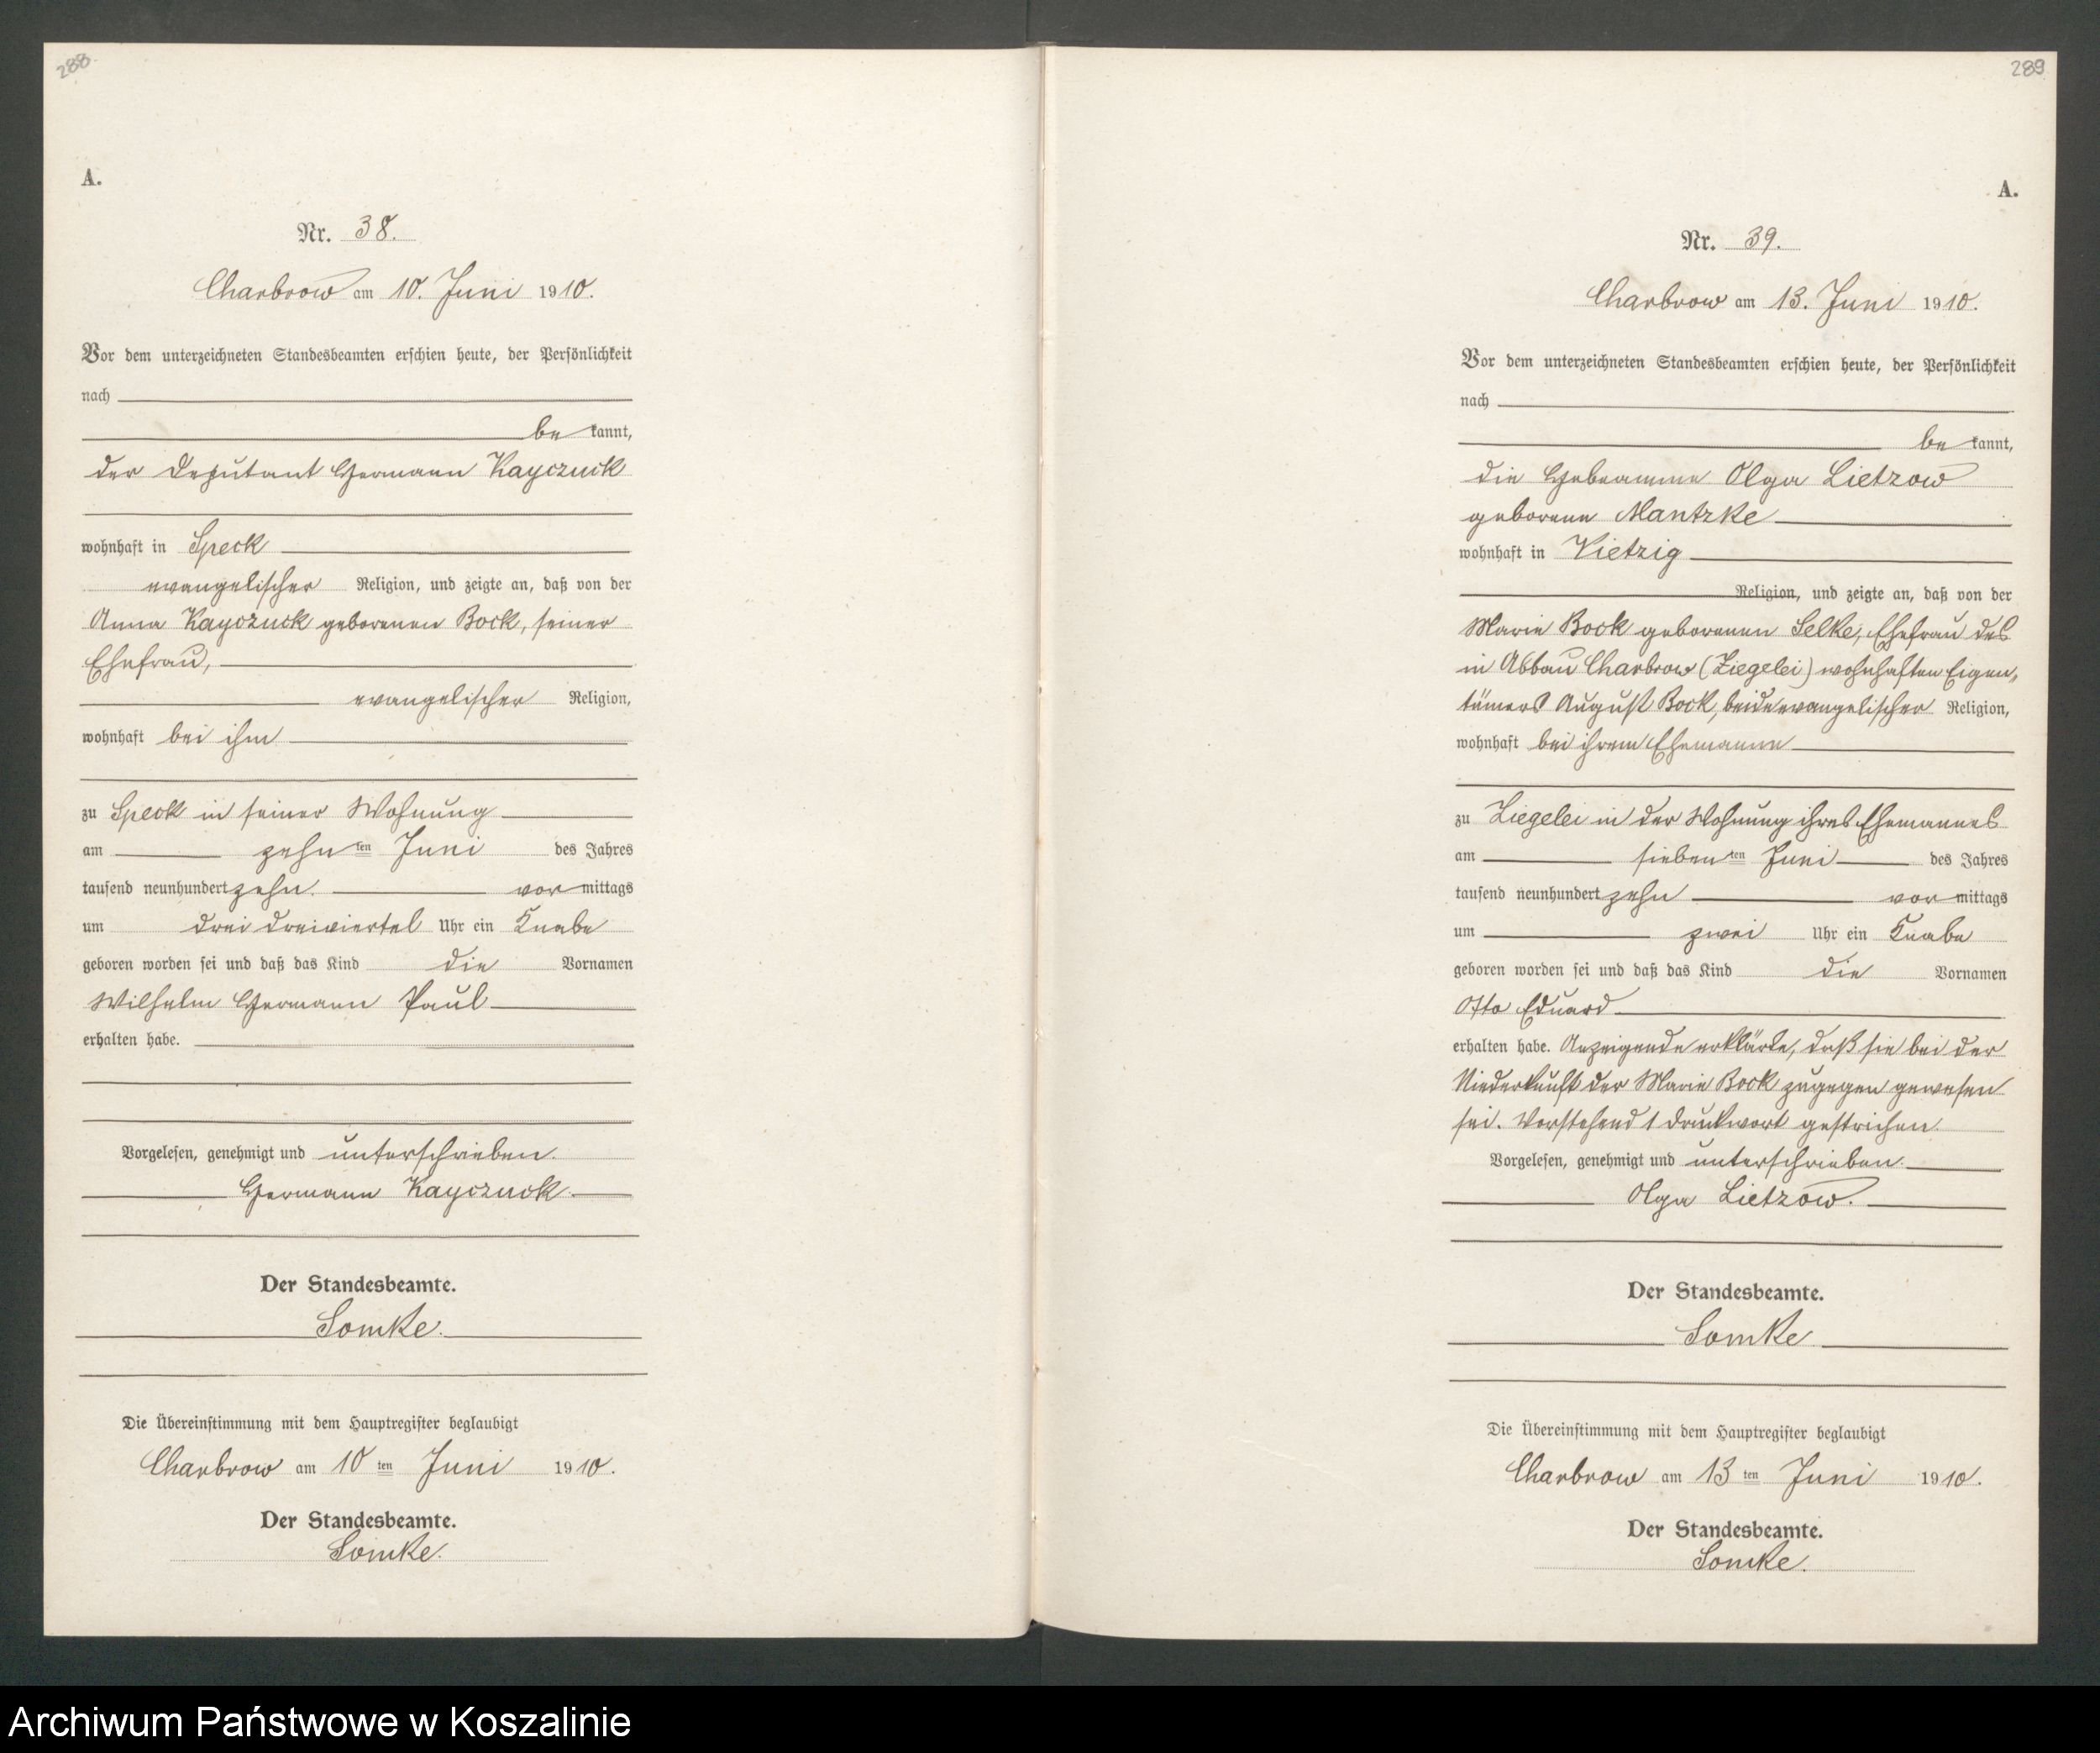 288
A.
Nr. 38.
Charbrow am 10. Juni 1910.
Vor dem unterzeichneten Standesbeamten erschien heute, der Persönlichkeit
nach
be kannt,
der Deputant Hermann Kayczuck
wohnhaft in Speck
evangelischer Religion, und zeigte an, daß von der
Anna Kayczuck geborenen Bock, seiner
Ehefrau,
evangelischer Religion,
wohnhaft bei ihm
zu Speck in seiner Wohnung
am zehn ten Juni des Jahres
tausend neunhundert zehn vor mittags
um drei dreiviertel Uhr ein Knabe
geboren worden sei und daß das Kind die Vornamen
Wilhelm Hermann Paul
erhalten habe.
Vorgelesen, genehmigt und unterschrieben.
Hermann Kayczuck.
Der Standesbeamte.
Somke.
Die Übereinstimmung mit dem Hauptregister beglaubigt
Charbrow am 10 ten Juni 1910.
Der Standesbeamte.
Somke.
289
A.
Nr. 39.
Charbrow am 13. Juni 1910.
Vor dem unterzeichneten Standesbeamten erschien heute, der Persönlichkeit
nach
be kannt,
die Hebeamme Olga Lietzow
geborene Mantzke
wohnhaft in Vietzig
Religion, und zeigte an, daß von der
Marie Bock geborenen Selke, Ehefrau des
in Abbau Charbrow (Ziegelei) wohnhaften Eigen-
tümers August Bock, beide evangelischer Religion,
wohnhaft bei ihrem Ehemanne
zu Ziegelei in der Wohnung ihres Ehemannes
am sieben ten Juni des Jahres
tausend neunhundert zehn vor mittags
um zwei Uhr ein Knabe
geboren worden sei und daß das Kind die Vornamen
Otto Eduard
erhalten habe. Anzeigende erklärte, daß sie bei der
Niederkunft der Marie Bock zugegen gewesen
sei. Vorstehend 1 Druckwort gestrichen.
Vorgelesen, genehmigt und unterschrieben.
Olga Lietzow.
Der Standesbeamte.
Somke
Die Übereinstimmung mit dem Hauptregister beglaubigt
Charbrow am 13 ten Juni 1910.
Der Standesbeamte.
Somke.
Archiwum Państwowe w Koszalinie